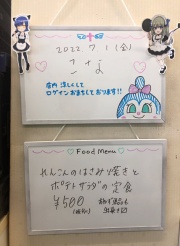 2022 7 1 (金)
ささな
店内 涼しくして
ログインお待ちしております!!
Food Menu
れんこんのはさみ焼きと
ポテトサラダの定食
¥500
(税込)